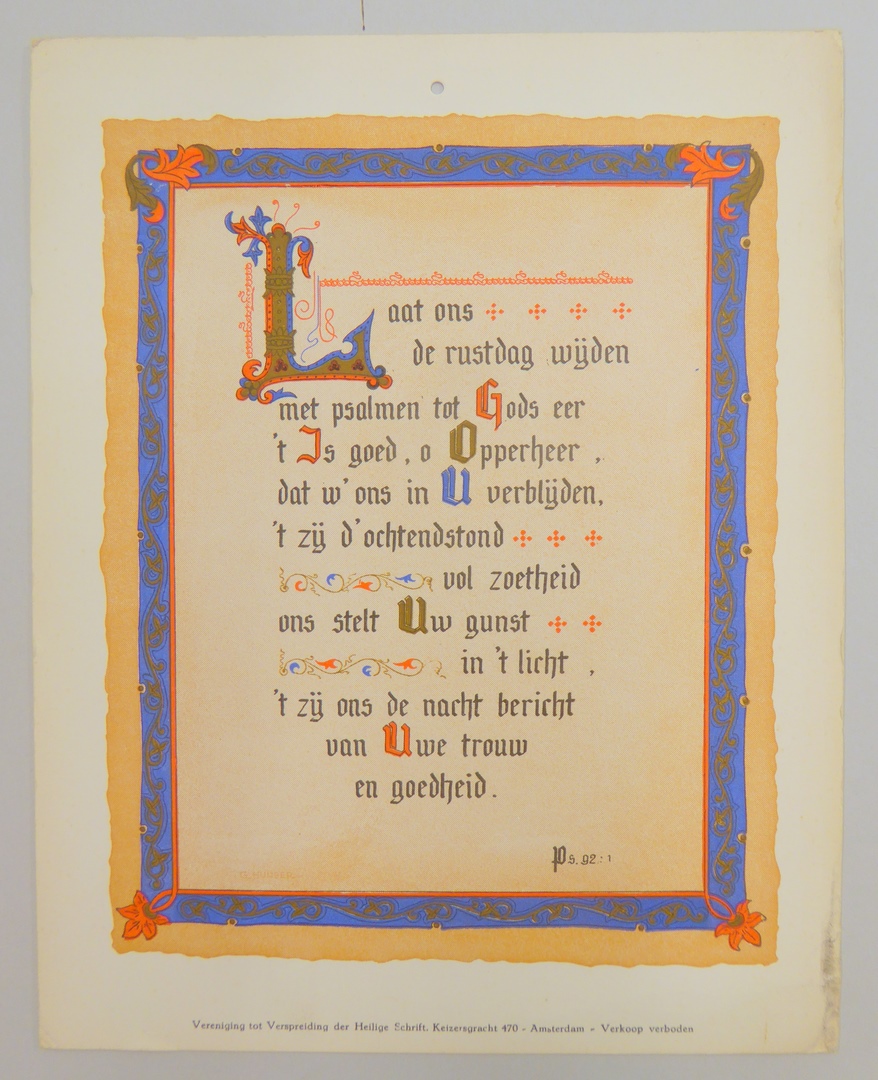 Laat ons
de rustdag wijden
met psalmen tot Gods eer
't Is goed, o Opperheer,
dat w' ons in U verblijden,
't zij d'ochtendstond
vol zoetheid
ons stelt Uw gunst
in 't licht,
't zij ons de nacht bericht
van Uwe trouw
en goedheid.
Ps. 92:1
Vereniging tot Verspreiding der Heilige Schrift, Keizersgracht 470 - Amsterdam - Verkoop verboden